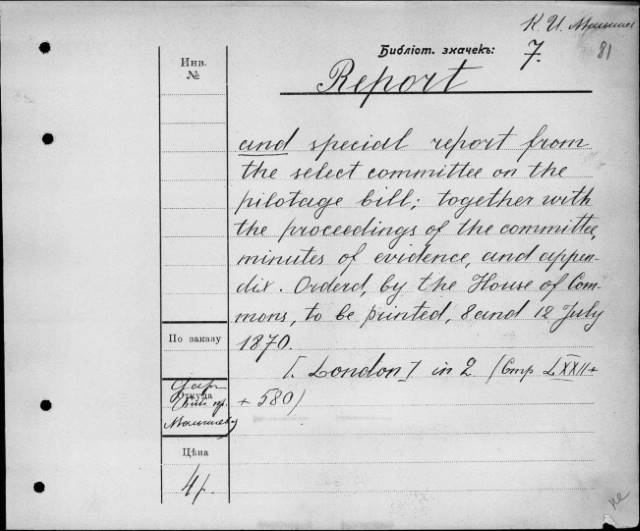 К. И.
81
Библіот. значекъ: 7.
Инв. №
Report
and special report from
the select committee on the
pilotage bill; together with
the proceedings of the committee,
minutes of evidence, and appen-
dix. Orderd, by the House of Com-
mons, to be printed, 8 and 12 July
1870.
[London] in 2 (Стр LXXII+
+ 580)
По заказу
Откуда
Цѣна
4/.